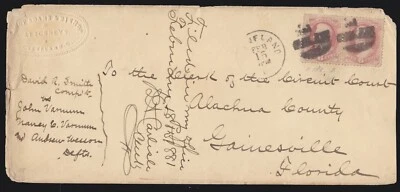 David A. Smith
Compt
vs
John Varnum
Nancy C. Varnum
Andrew Wesson
Defts.
Filed in my office
February 18th 1881
Clerk
FEB
To the Clerk of the Circuit Court
Alachua County
Gainesville
Florida